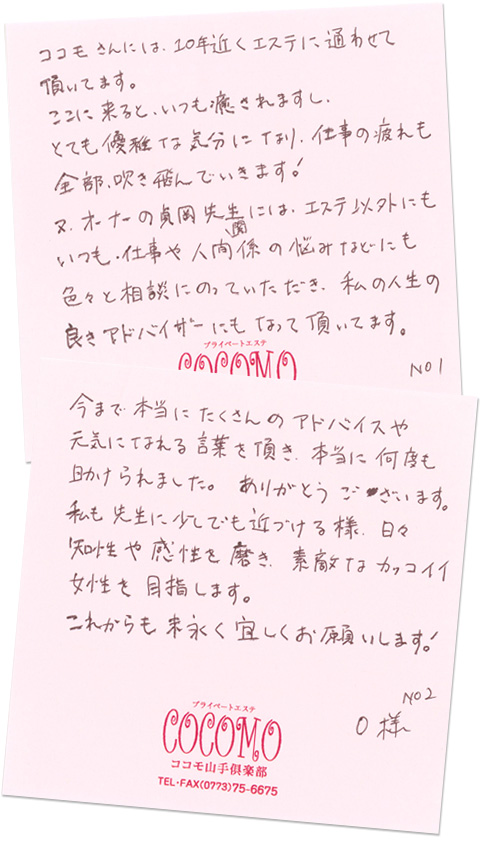 ココモさんには、10年近くエステに通わせて
頂いてます。
ここに来ると、いつも癒されますし、
とても優雅な気分になり、仕事の疲れも
全部、吹き飛んでいきます!
又、オーナーの貞岡先生には、エステ以外にも
いつも、仕事や人間関係の悩みなどにも
色々と相談にのっていただき、私の人生の
良きアドバイザーにもなって頂いてます。
プライベートエステ
COCOMO
NO1
今まで本当にたくさんのアドバイスや
元気になれる言葉を頂き、本当に何度も
助けられました。ありがとうございます。
私も先生に少しでも近づける様、日々
知性や感性を磨き、素敵なカッコイイ
女性を目指します。
これからも末永く宜しくお願いします!
NO2
O様
プライベートエステ
COCOMO
ココモ山手倶楽部
TEL・FAX(0773)75-6675